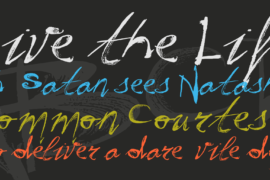 ive the Lif
Satan sees Natas
ommon Courtes
deliver a dare vile d